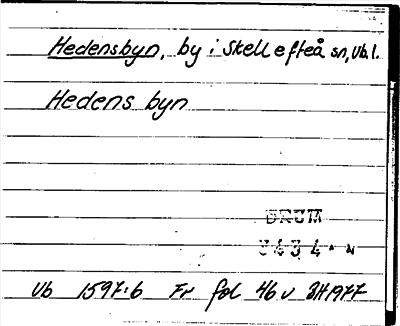 Hedensbyn, by i Skellefteå sn, Vb l.
Hedens byn
DAUM
3434
Vb 1597:6 Fr fol 46 v BH 1977